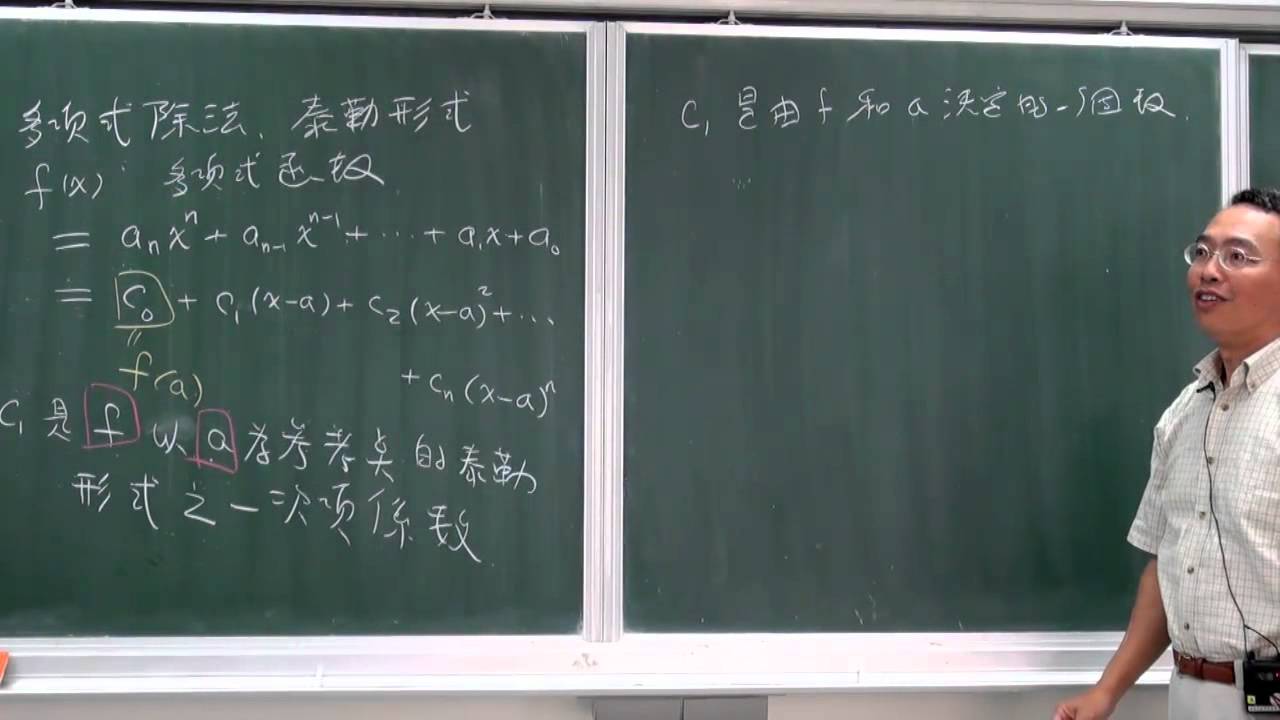 多项式除法、泰勒形式
f(x) 多项式函数
= aₙxⁿ + aₙ₋₁xⁿ⁻¹ + ⋯ + a₁x + a₀
= c₀ + c₁(x-a) + c₂(x-a)² + ⋯
+ cₙ(x-a)ⁿ
f(a)
C₁ 是 f 以 a 为参考点的泰勒
形式之一次项係数
C₁ 是由 f 和 a 决定的一个数.